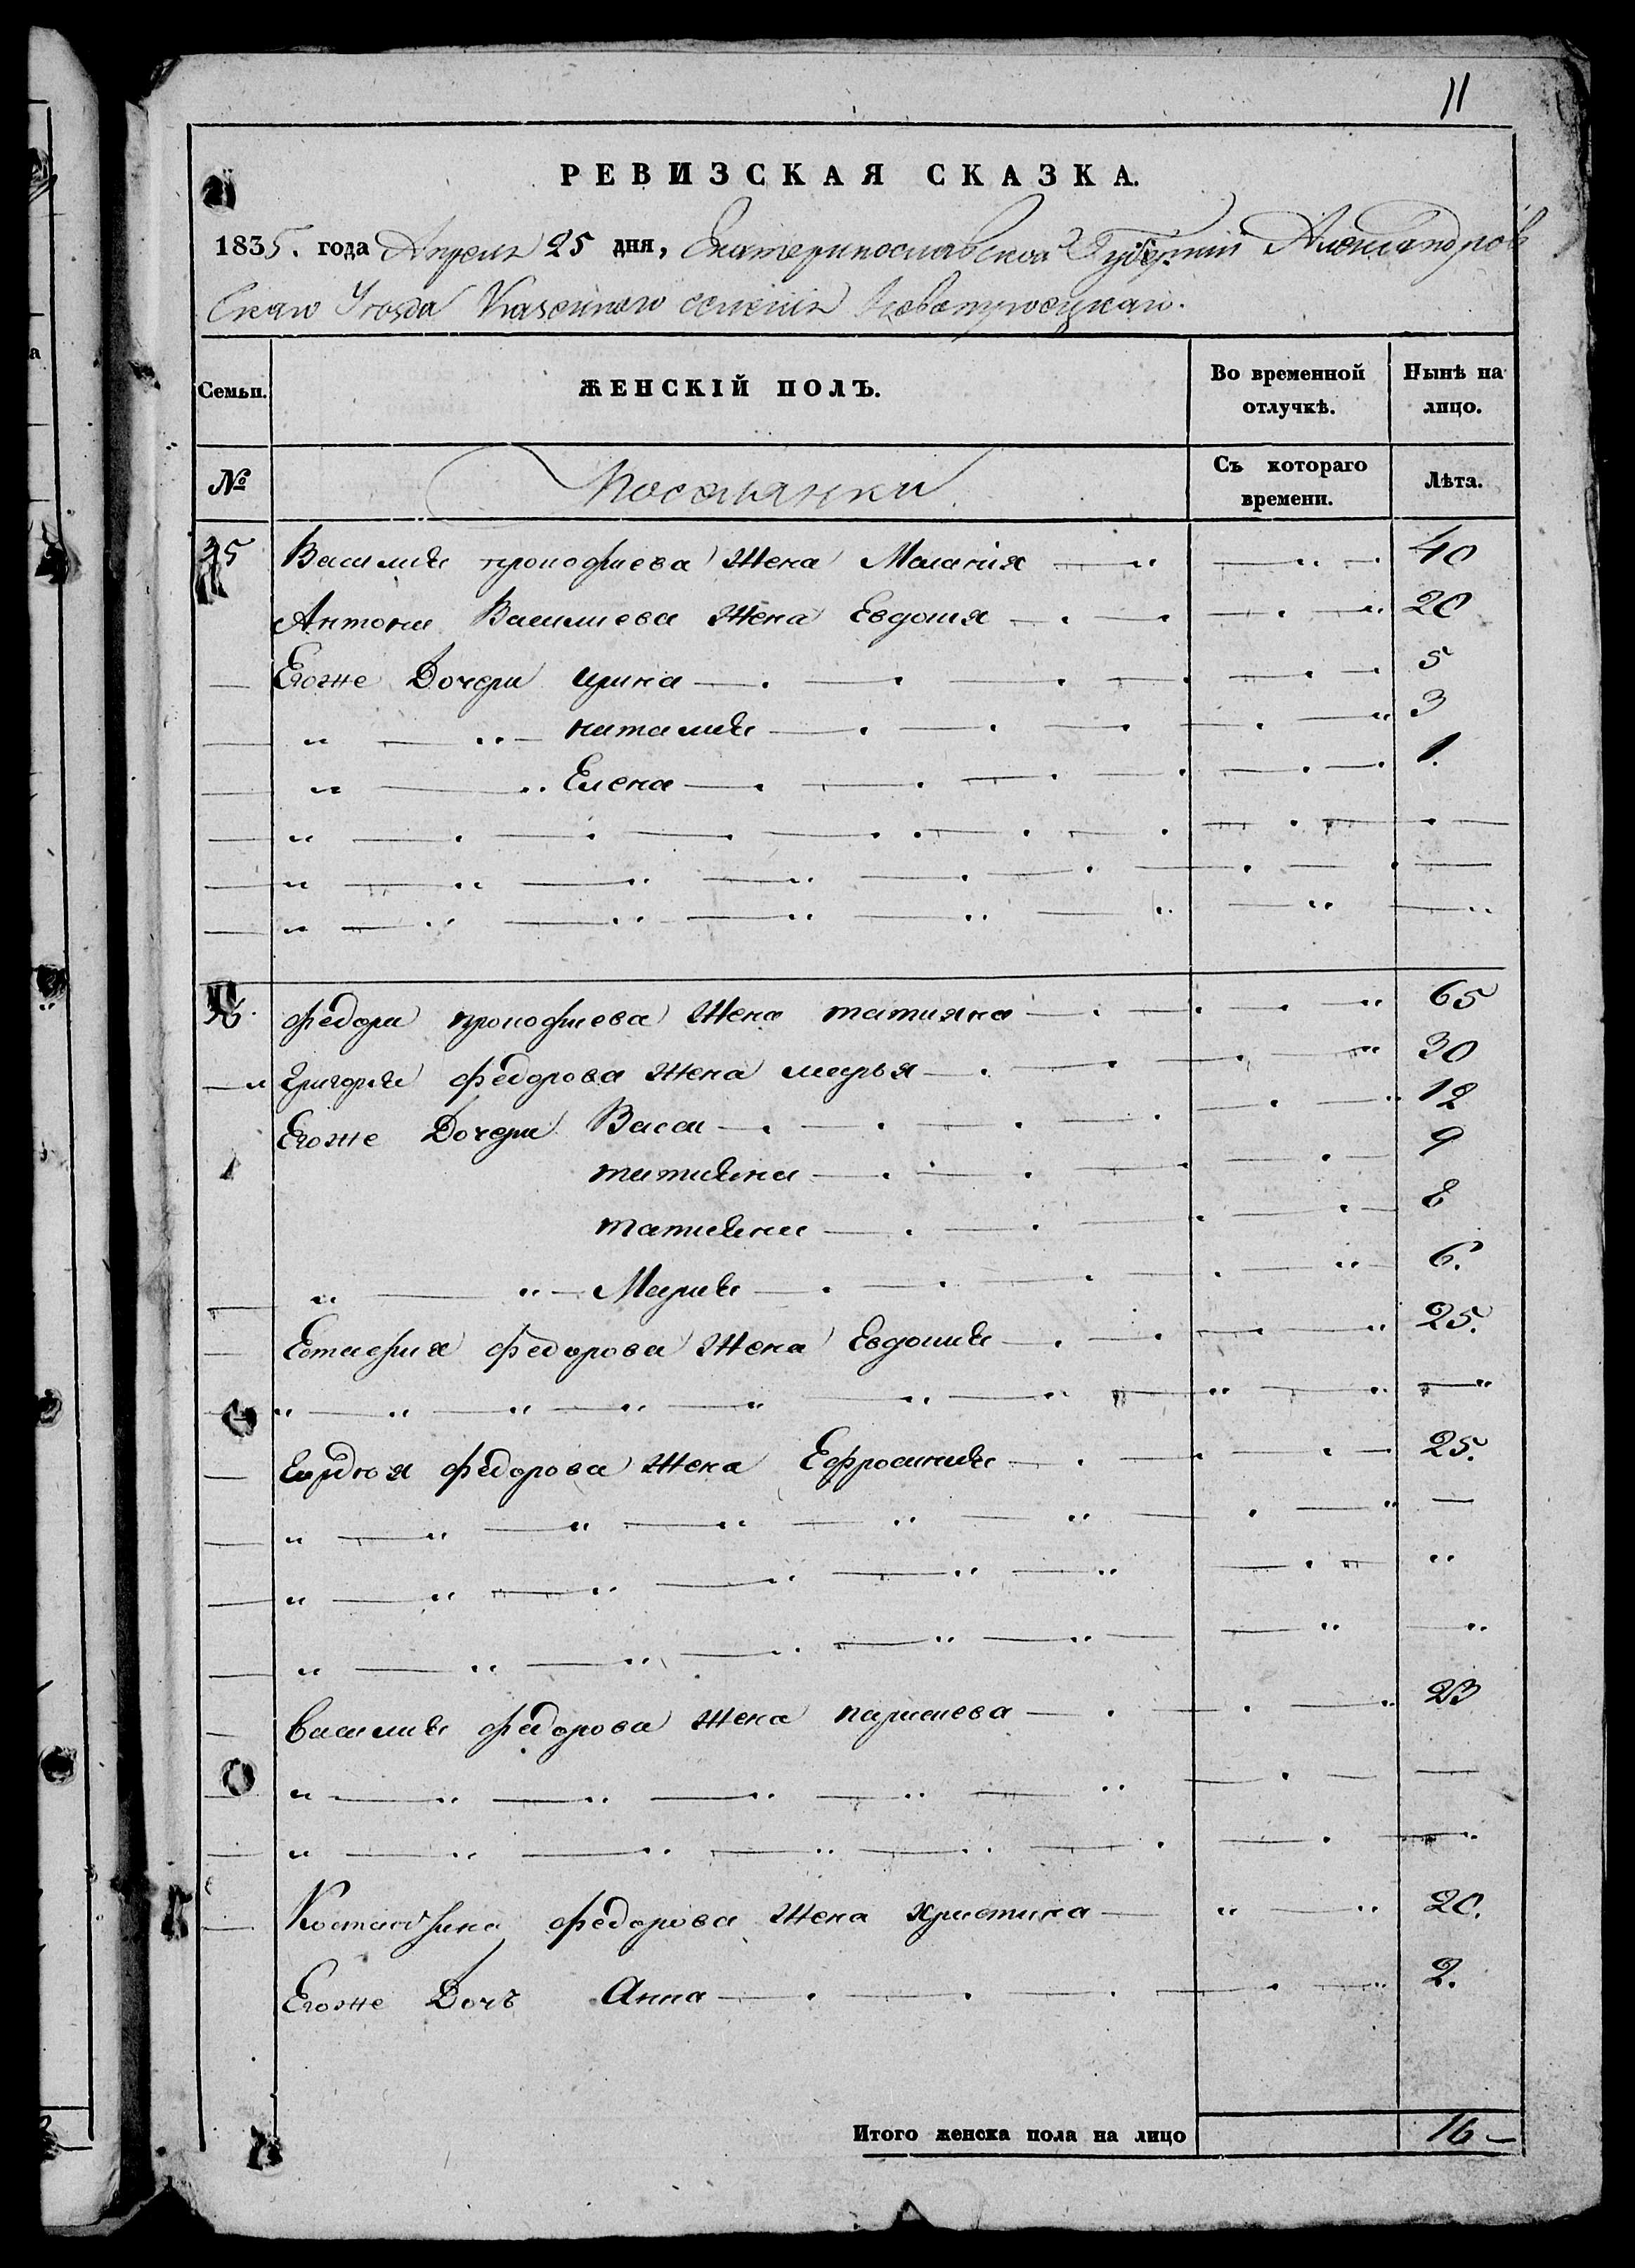 11
РЕВИЗСКАЯ СКАЗКА.
1835. года Апреля 25 дня, Екатеринославской Губернии Александров
скаго Уезда Казенного селения Новотроецкаго.
Семьи. ЖЕНСКІЙ ПОЛЪ. Во временной отлучкѣ. Нынѣ на лицо.
№ Поселянки Съ котораго времени. Лѣта.
35 Василия прокофиева Жена Малания 40
Антона Василиева Жена Евдокия 20
Егоже Дочери ирина 5
наталия 3
Елена 1.
36. федора прокофиева Жена татияна 65
григория федорова жена марья 30
Егоже Дочери Васа 12
татияна 9
татияна 8
Мария 6.
Естафия федорова Жена Евдокия 25.
федорова жена Ефросиния 25.
василия федорова жена параскева 23
федорова жена христина 20.
Егоже Дочь Анна 2.
Итого женска пола на лицо 16